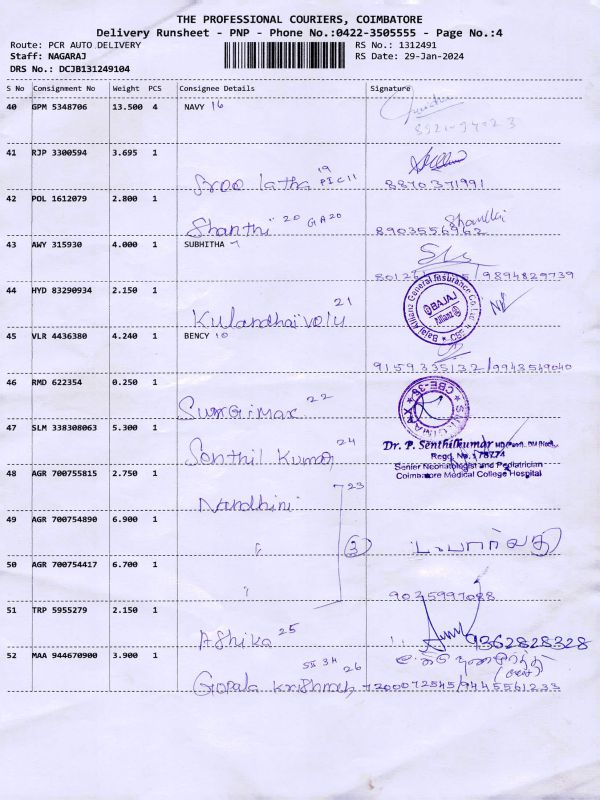 THE PROFESSIONAL COURIERS, COIMBATORE
Delivery Runsheet - PNP - Phone No.:0422-3505555 - Page No.:4
Route: PCR AUTO DELIVERY
RS No.: 1312491
Staff: NAGARAJ
RS Date: 29-Jan-2024
DRS No.: DCJB131249104
S No Consignment No Weight PCS Consignee Details Signature
40 GPM 5348706 13.500 4 NAVY 16
41 RJP 3300594 3.695 1
Sree latha 19 PIC11 8870371991
42 POL 1612079 2.800 1
Shanthi 20 GA20 8903556962
43 AWY 315930 4.000 1 SUBHITHA
9894829739
44 HYD 83290934 2.150 1
Kulandhaivelu 21
BAJAJ Allianz
Bajaj Allianz General Insurance Co. Ltd
45 VLR 4436380 4.240 1 BENCY 10
9159335132/9943549040
46 RMD 622354 0.250 1
22
CBE-38
47 SLM 338308063 5.300 1
Senthil Kumar 24
Dr. P. Senthilkumar
Regd. No.
Senior Neonatologist and Pediatrician
Coimbatore Medical College Hospital
48 AGR 700755815 2.750 1
Nandhini 23
49 AGR 700754890 6.900 1
" 3
50 AGR 700754417 6.700 1
" 9035997088
51 TRP 5955279 2.150 1
Ashika 25 9362828328
52 MAA 944670900 3.900 1
Gopala Krishnan 26 7200072545/9445561233